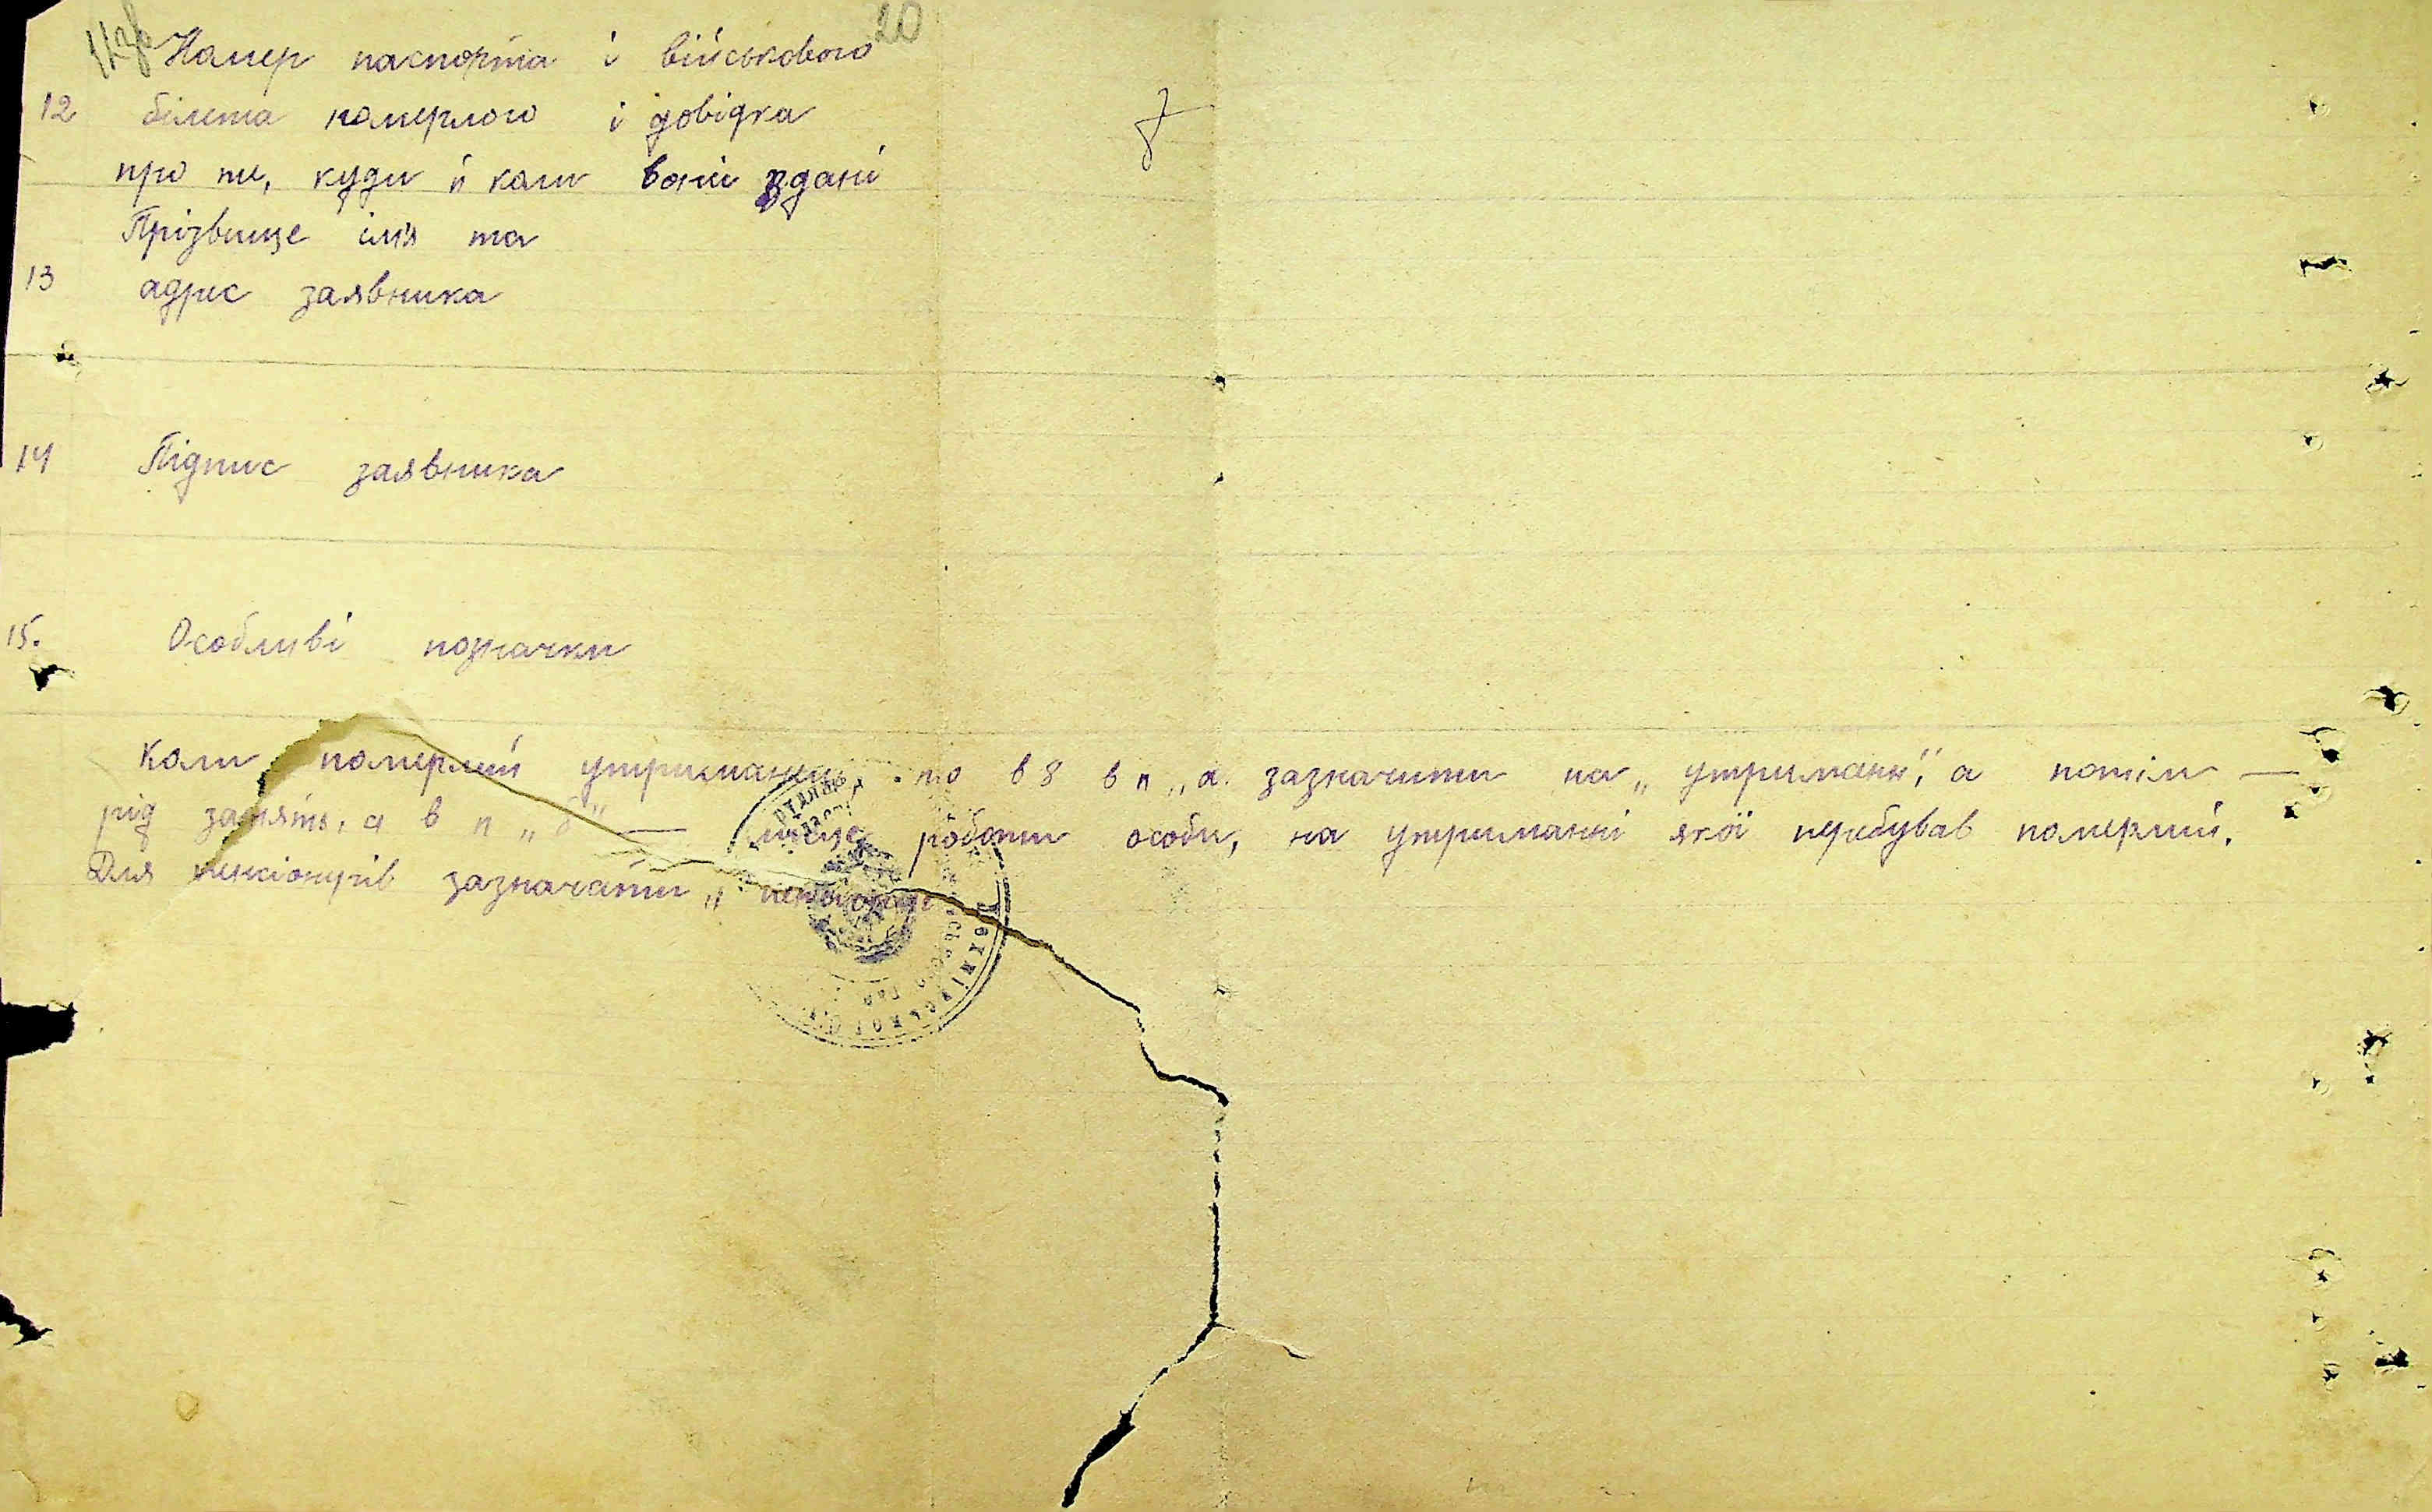 20
Номер паспорта і військового
12 білета померлого і довідка
про те, куди й коли вони здані
Прізвище ім'я та
13 адрес заявника
14 Підпис заявника
15. Особливі позначки
Коли померлий утриманець, то в 8 в п „а. зазначити на „утриманн", а потім —
рід занять, а в п „б" — місце роботи особи, на утриманні якої перебував померлий.
Для пенсіонерів зазначати „